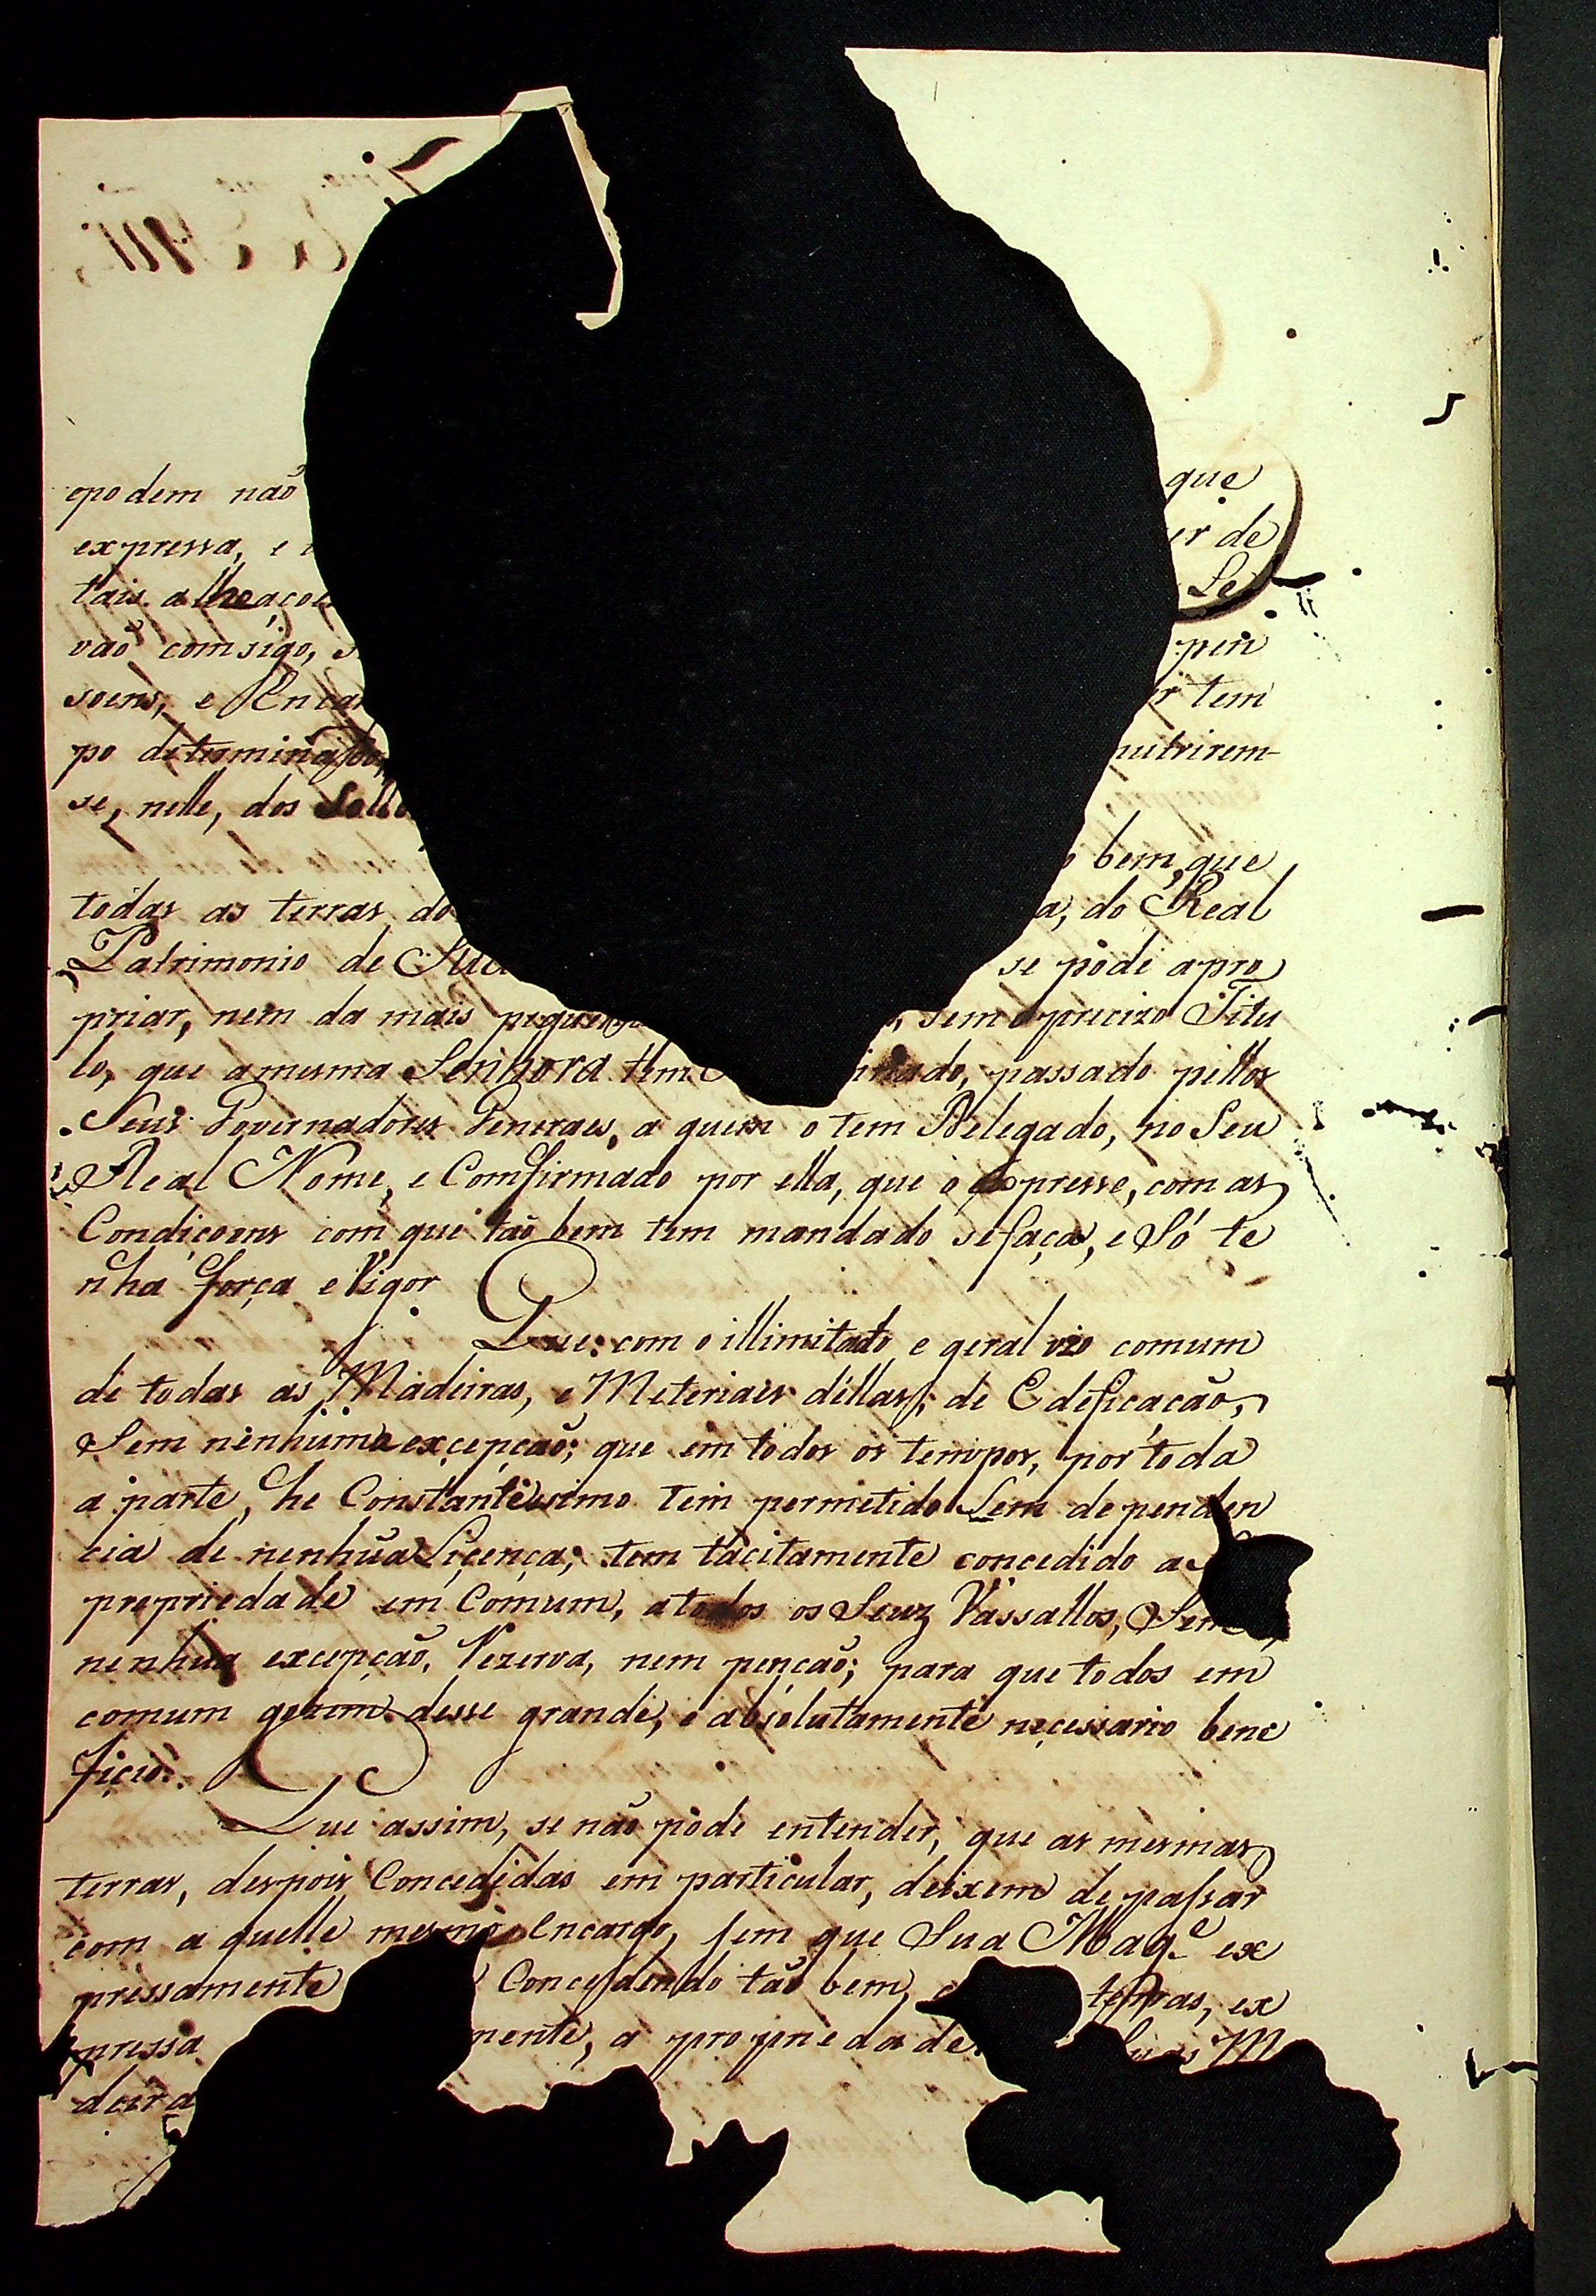 epodem não que
expressa, e er de
tais alheaçoes Se
vaõ comsigo, pen
soens, e Encar r tem
po determinado, nutrirem-
se, nelle, dos
bem, que
todas as terras do a, do Real
Patrimonio de Sua se pòde apro
priar, nem da mais pequena sem o precizo Titu
lo, que amesma Senhora tem do, passado pellos
Seus Governadores Generaes, a quem o tem Delegado, no Seu
Real Nome, e Comfirmado por ella, que o expresse, com as
Condiçoens com que tão bem tem mandado sefaça, e Só te
nha força e Vigor
Que: com o illimitado e geral uzo comum
de todas as Madeiras, e Meteriaes déllas, de Edeficacão,
Sem nenhuma excepçaõ; que em todos os tempos, por toda
a parte, he Constantissimo tem permetido Sem dependen
cia de nenhũa Liçença; tem tàcitamente concedido a
propriedade em Comum, atodos os Seuz Vassallos, Sem
nenhua excepção, Rezerva, nem penção; para que todos em
comum gozem desse grande, e absolutamente neçessario bene
fiçio.
Que assim, se não pòde entender, que as mesmas
terras, despois Concedidas em particular, deixem de passar
com a quelle mesmo encargo, sem que Sua Mag.e ex
pressamente Concedendo tão bem, terras, ex
pressa mente, a propriedade Suas M
deira